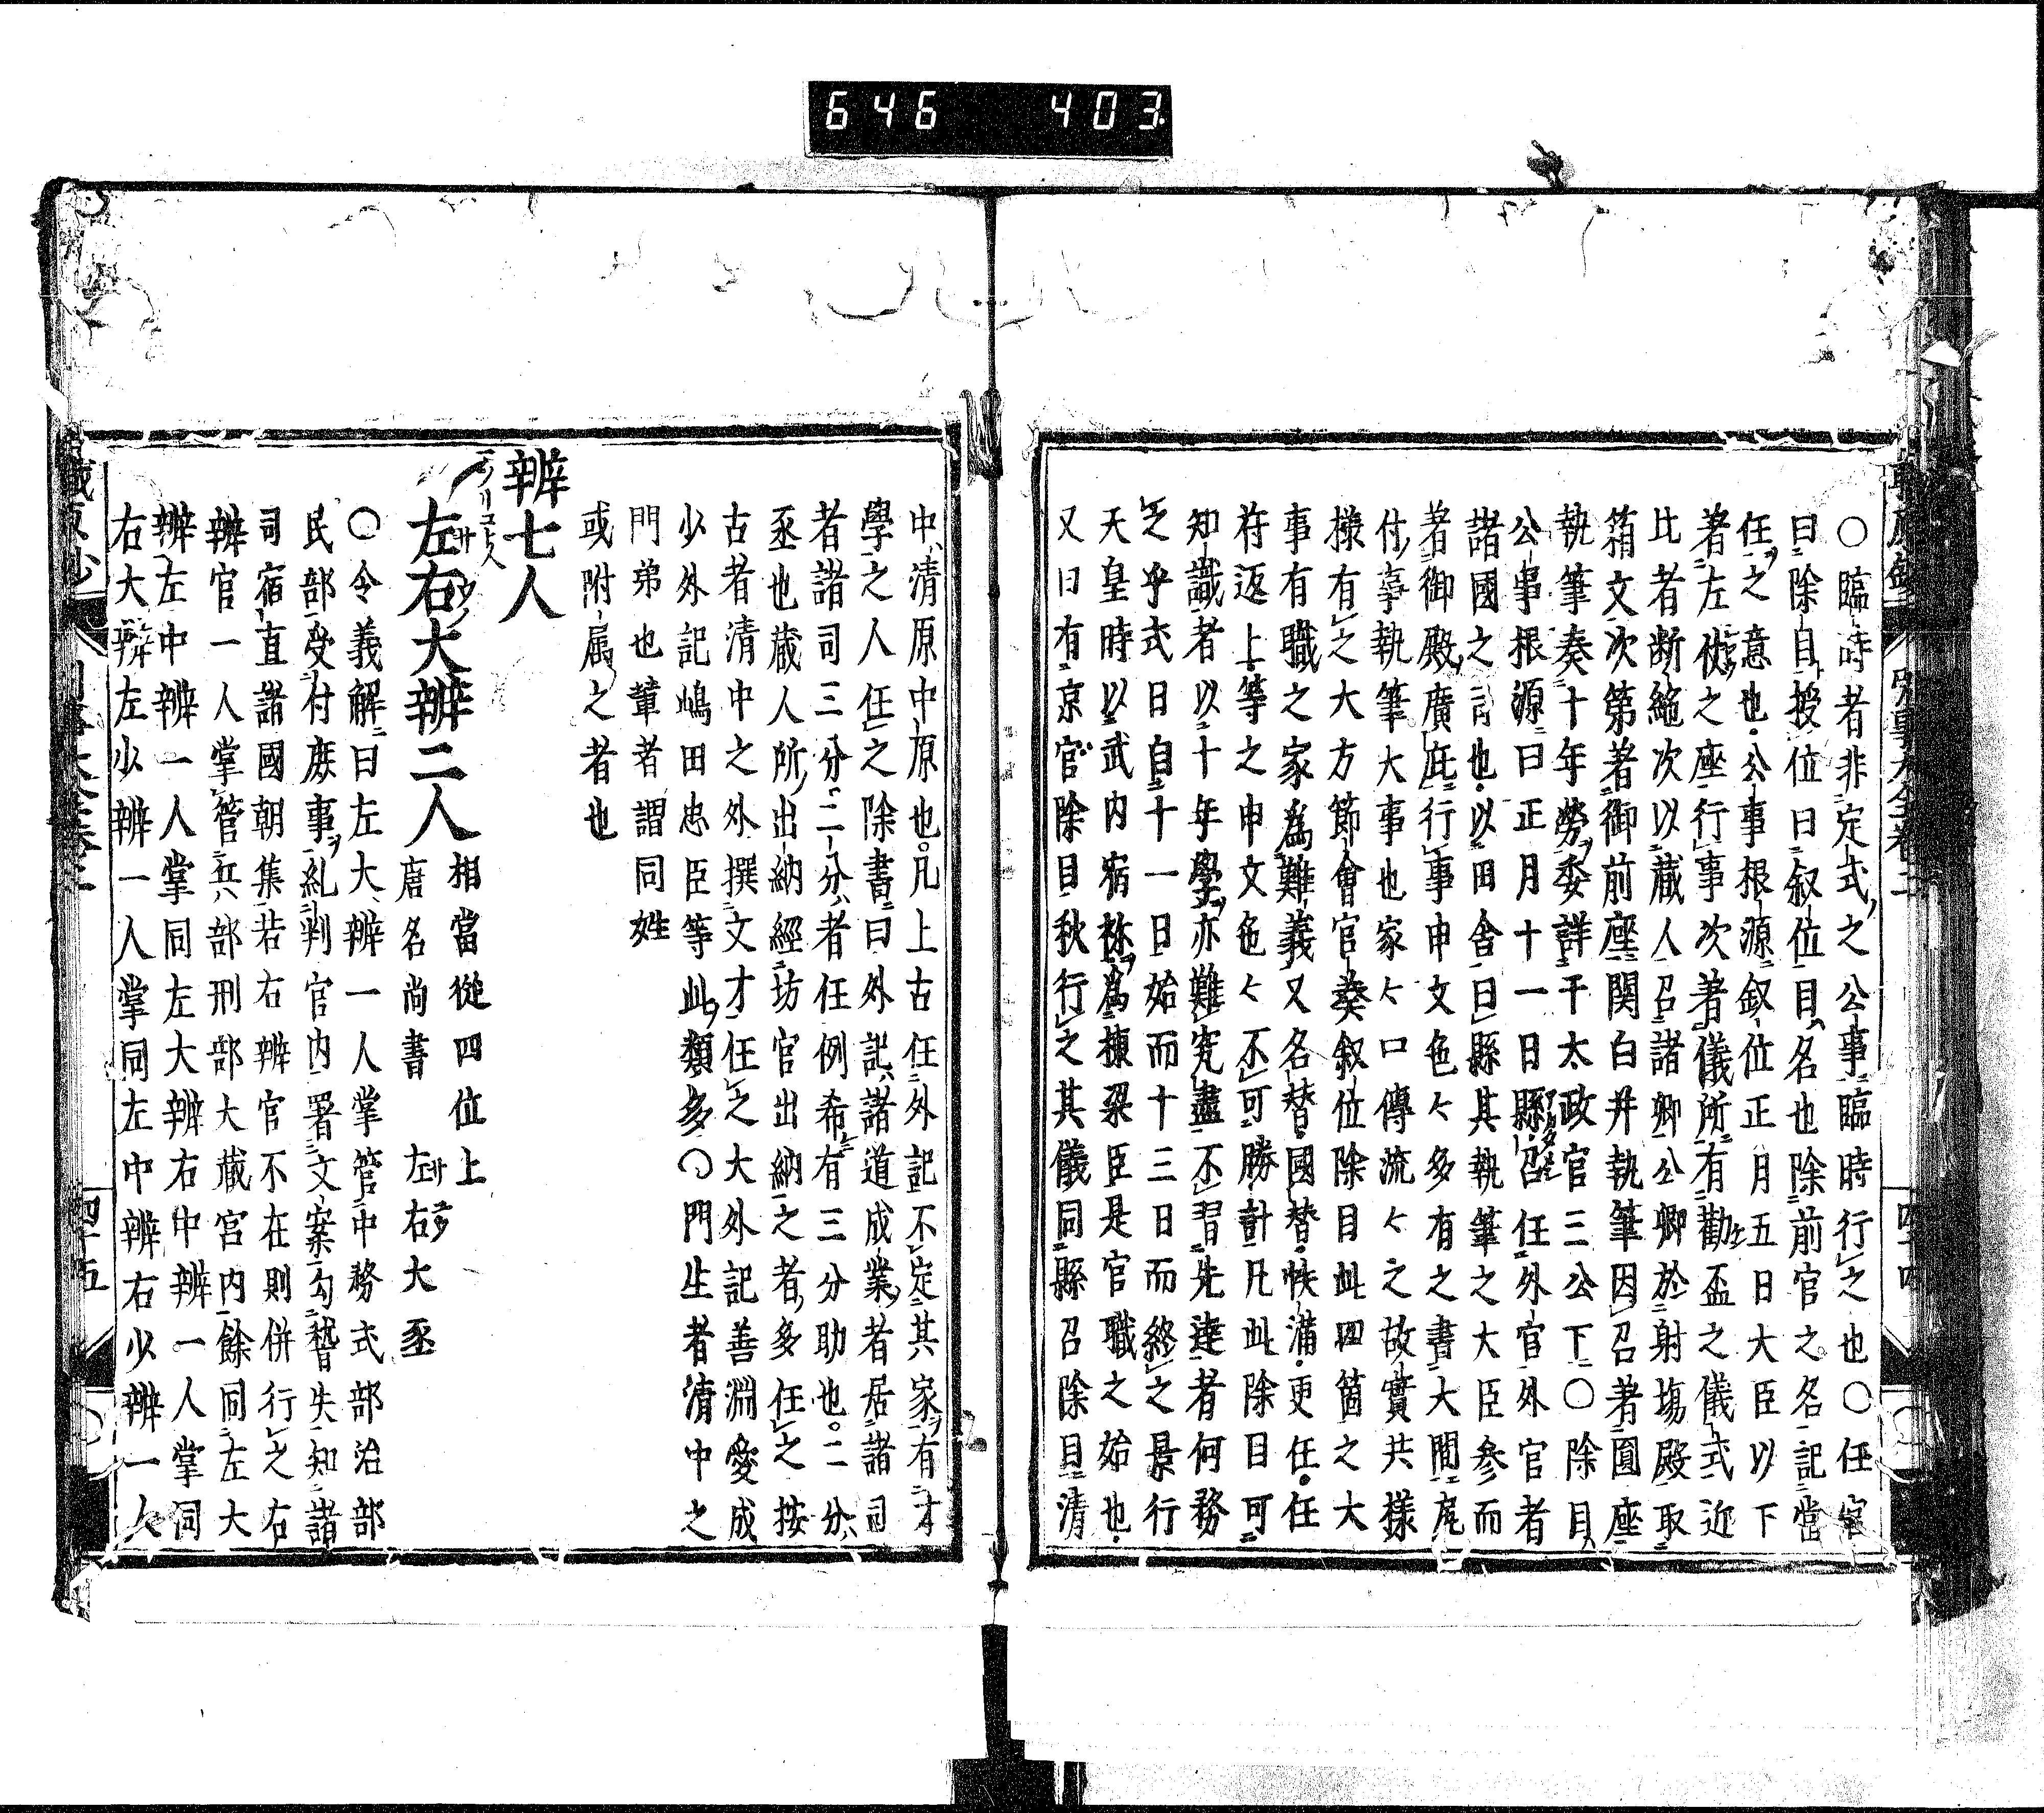 646 403.
○臨時者非定式之公事臨時行之也○任官
曰除目授位曰叙位目名也除前官之名記當
任之意也公事根源叙位正月五日大臣以下
著左仗之座行事次著儀所有勸盃之儀式近
比者断絶次以蔵人召諸卿公卿於射塲殿取
箱文次第著御前座関白并執筆因召著圓座
執筆奏十年勞委詳干太政官三公下○除目
公事根源曰正月十一日縣召任外官外官者
諸國之司也以田舎曰縣其執筆之大臣参而
著御殿廣庇行事申文色々多有之書大間尻
付事執筆大事也家々口傳流々之故實共様
様有之大方節會官奏叙位除目此四箇之大
事有職之家為難義又名替國替秩満更任任
符返上等之申文色々不可勝計凡此除目可
知識者以十年學亦難究盡不習先達者何務
之乎式日自十一日始而十三日而終之景行
天皇時以武内宿祢為棟梁臣是官職之始也
又曰有京官除目秋行之其儀同縣召除目清
中清原中原也凡上古任外記不定其家有才
學之人任之除書曰外記諸道成業者居諸司
者諸司三分二分者任例希有三分助也二分
丞也蔵人所出納經坊官出納之者多任之按
古者清中之外撰文才任之大外記善淵愛成
少外記嶋田忠臣等此類多○門生者清中之
門弟也輩者謂同姓
或附屬之者也
辨七人
左右大辨二人 相當從四位上
唐名尚書 左右大丞
○令義解曰左大辨一人掌管中務式部治部
民部受付庶事糺判官内署文案勾誓失知諸
司宿直諸國朝集若右辨官不在則併行之右
辨官一人掌管兵部刑部大蔵宮内餘同左大
辨左中辨一人掌同左大辨右中辨一人掌同
右大辨左少辨一人掌同左中辨右少辨一人
四十五